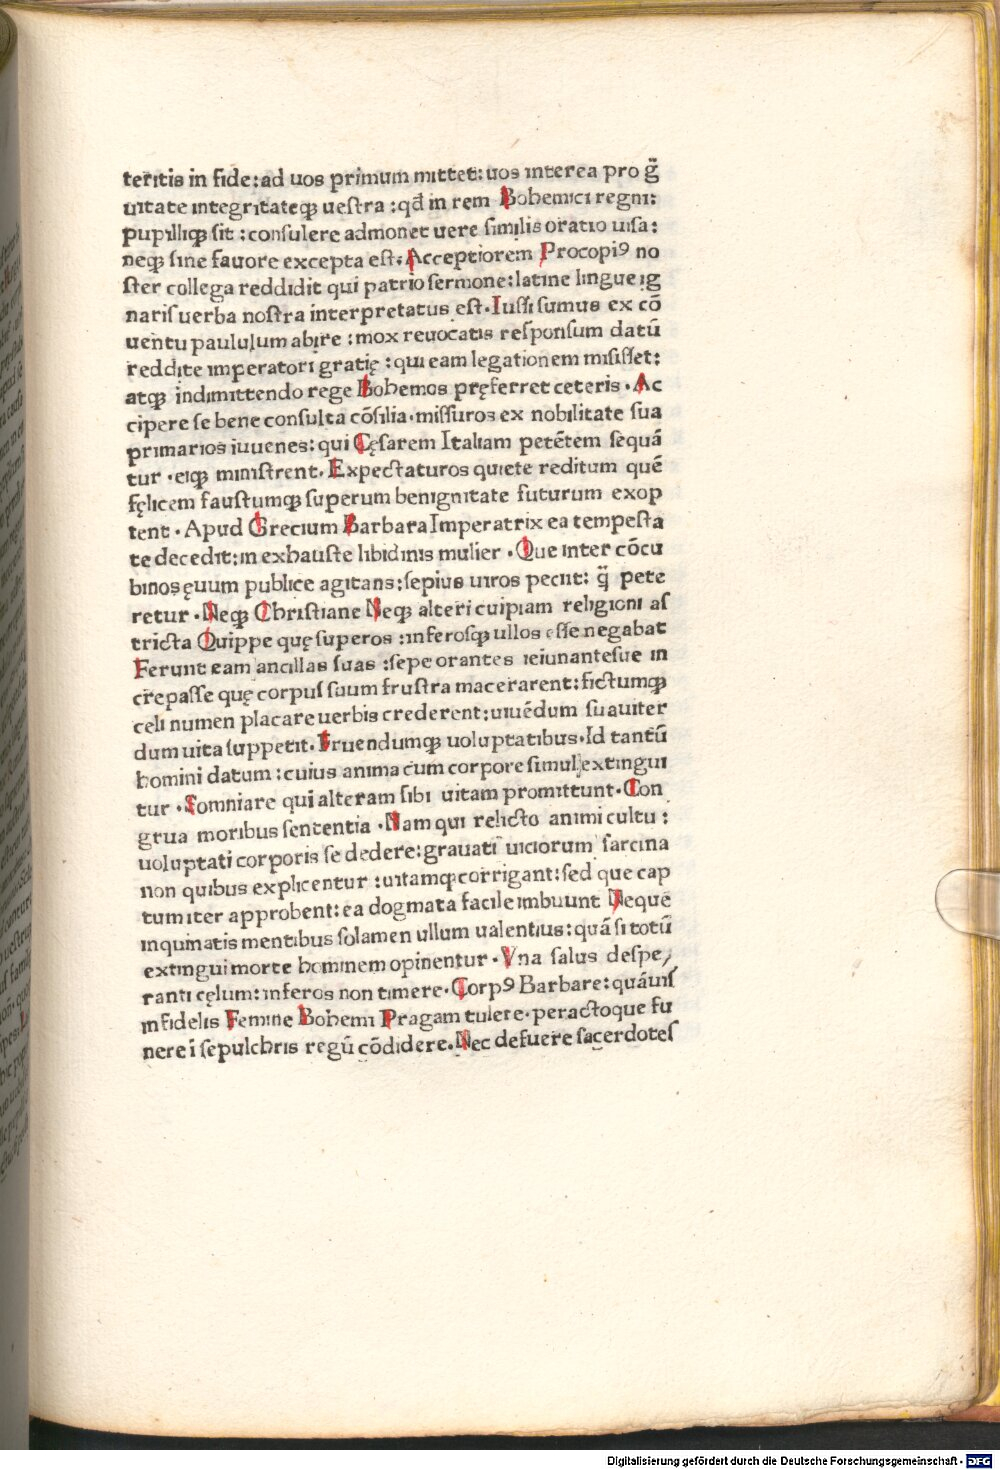 teritis in fide:ad uos primum mittet:uos interea pro g̃
uitate integritateqꝫ ueſtra :qđ in rem Bohemici regni:
pupilliqꝫ ſit :conſulere admonet uere ſimilis oratio uiſa:
neqꝫ ſine fauore excepta eſt.Acceptiorem Procopiꝰ no
ſter collega reddidit qui patrio ſermone:latine lingue ig
nariſ uerba noſtra interpretatus eſt.Iuſſi ſumus ex cō
uentu paululum abire :mox reuocatis reſponſum datū
reddite imperatori gratię :qui eam legationem miſiſſet:
atqꝫ indimittendo rege Bohemos pręferret ceteris.Ac
cipere ſe bene conſulta cōſilia.miſſuros ex nobilitate ſua
primarios iuuenes:qui Cęſarem Italiam petētem ſequā
tur .eiqꝫ miniſtrent.Expectaturos quiete reditum quē
fęlicem fauſtumqꝫ ſuperum benignitate futurum exop
tent.Apud Grecium Barbara Imperatrix ea tempeſta
te decedit:in exhauſte libidinis mulier .Que inter cōcu
binos ęuum publice agitans:ſepius uiros peciit: q̃ pete
retur .Neqꝫ Chriſtiane Neqꝫ alteri cuipiam religioni aſ
tricta Quippe quę ſuperos :inferoſqꝫ ullos eſſe negabat
Ferunt eam ancillas ſuas :ſepe orantes ieiunanteſue in
crepaſſe quę corpuſ ſuum fruſtra macerarent:fictumqꝫ
celi numen placare uerbis crederent:uiuēdum ſuauiter
dum uita ſuppetit.Fruendumqꝫ uoluptatibus.Id tantū
homini datum :cuius anima cum corpore ſimul extingui
tur .Somniare qui alteram ſibi uitam promittunt.Con
grua moribus ſententia .Nam qui relicto animi cultu :
uoluptati corporis ſe dedere:grauati uiciorum ſarcina
non quibus explicentur :uitamqꝫ corrigant:ſed que cap
tum iter approbent:ea dogmata facile imbuunt Neque
inquinatis mentibus ſolamen ullum ualentius:quā ſi totū
extingui morte hominem opinentur.Vna ſalus deſpe/
ranti cęlum:inferos non timere.Corpꝰ Barbare:quāuiſ
infidelis Femine Bohemi Pragam tulere.peractoque fu
nere i ſepulchris regū cōdidere.Nec defuere ſacerdoteſ
Digitalisierung gefördert durch die Deutsche Forschungsgemeinschaft - DFG